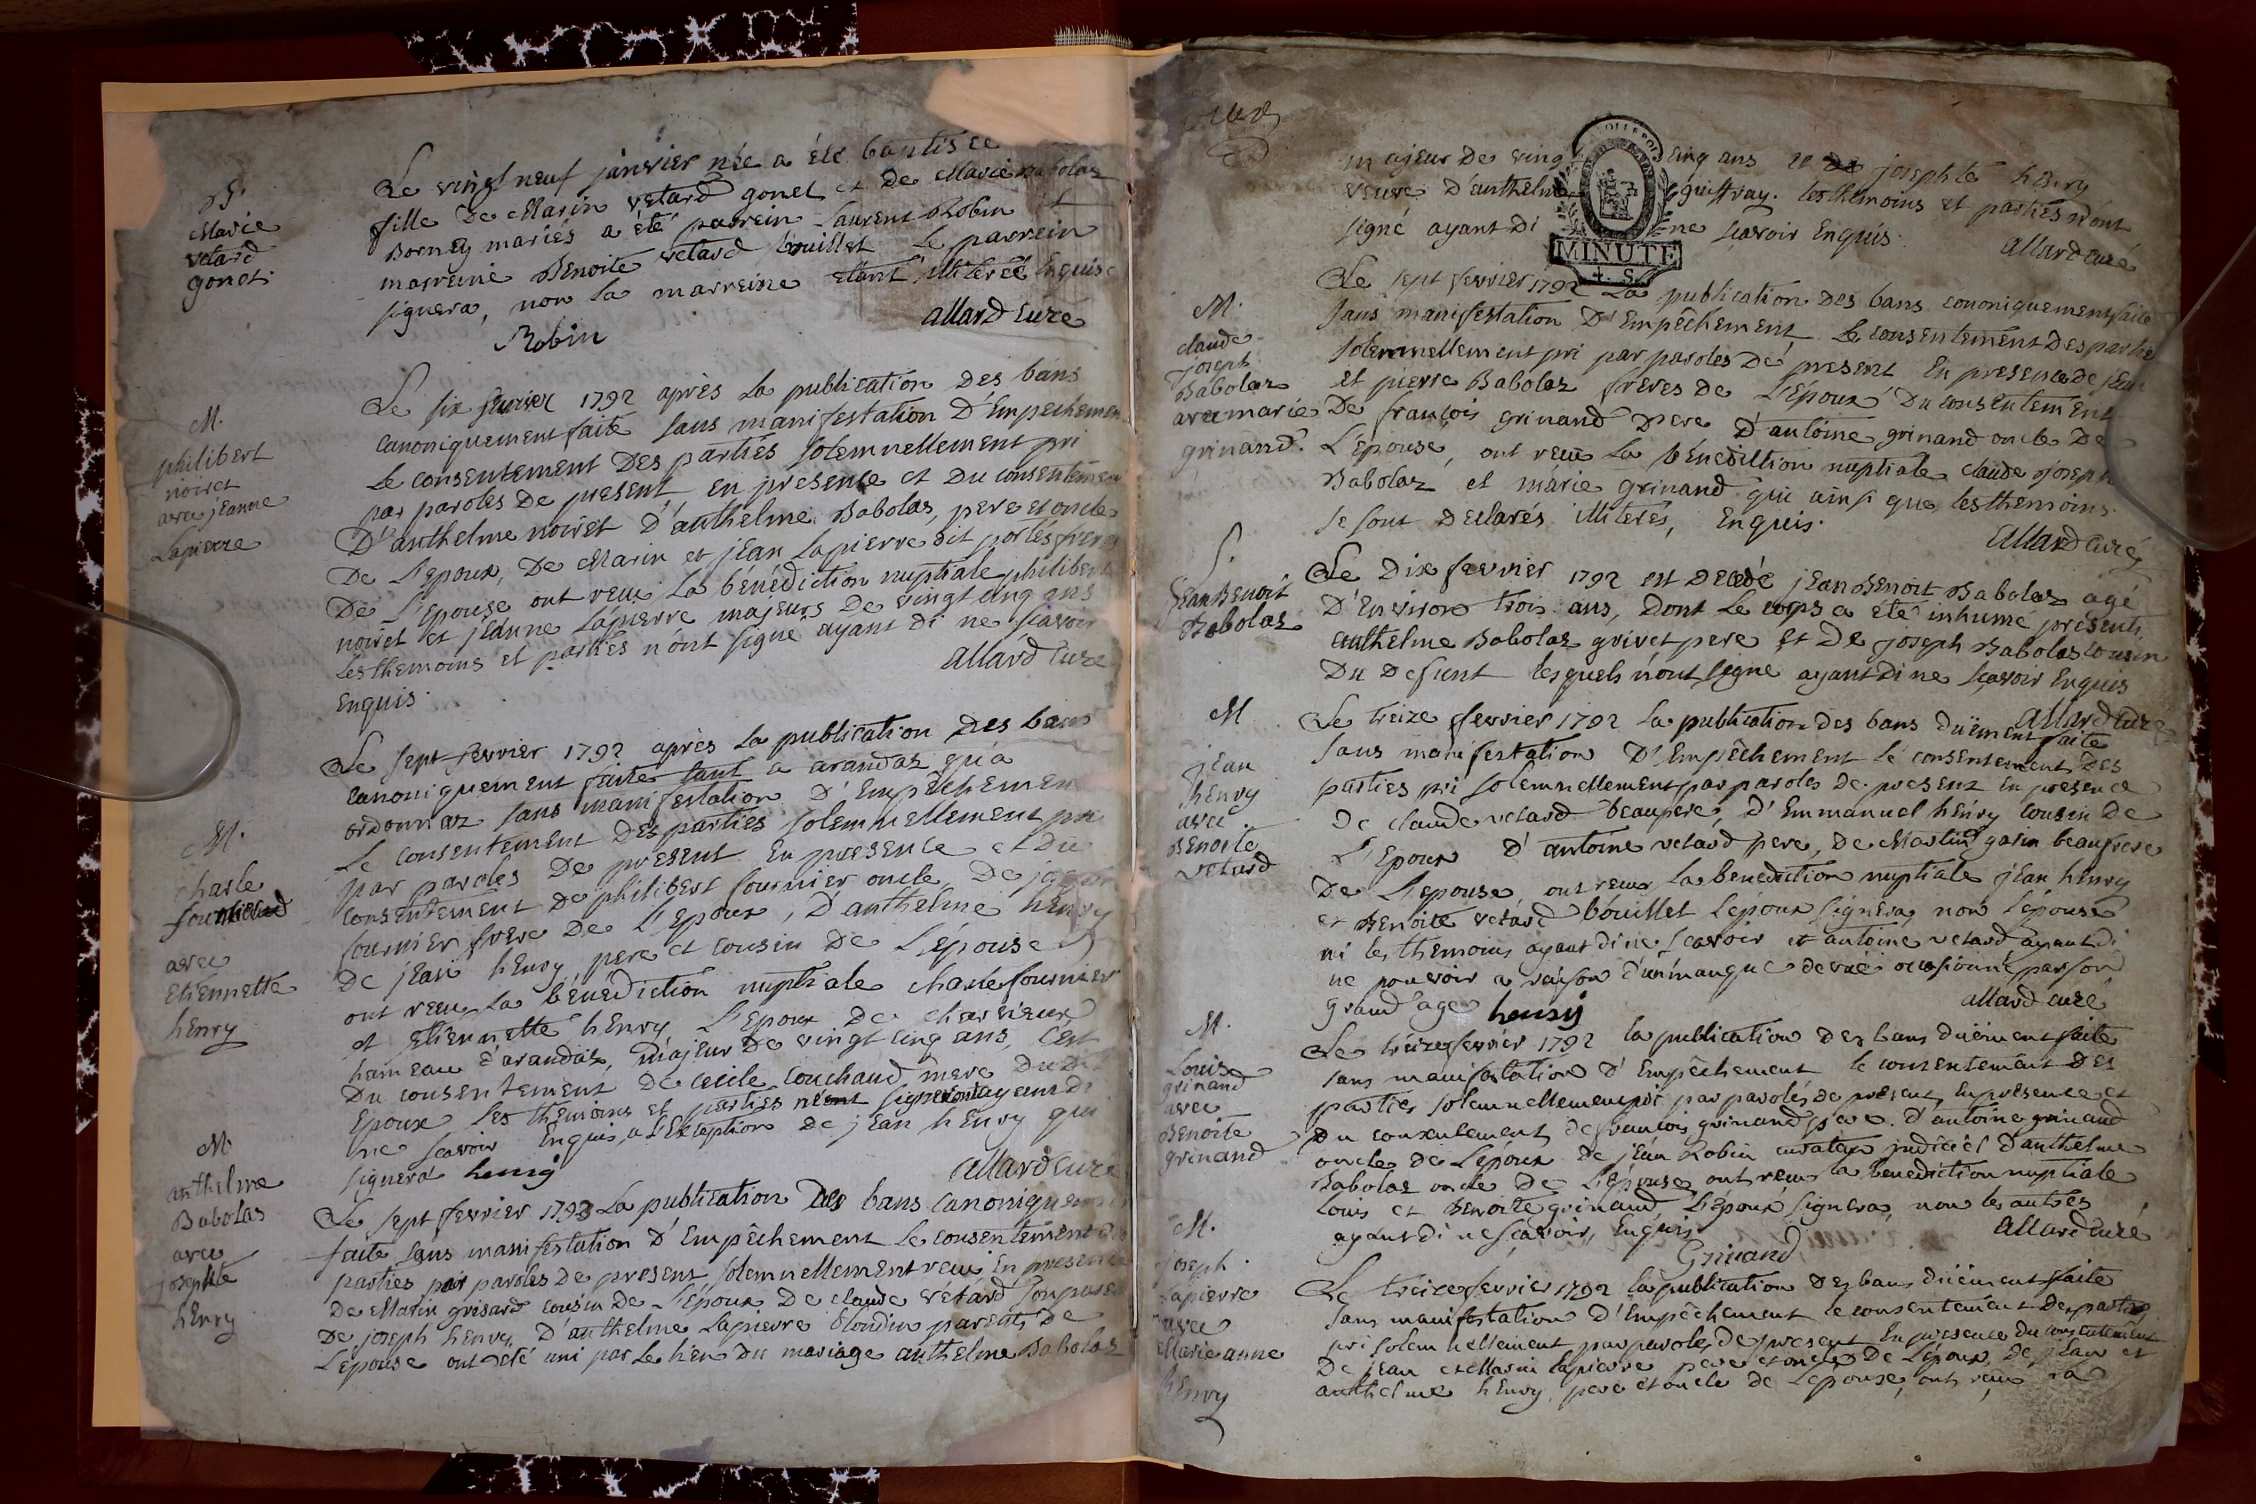 B.
Marie
vetard
gonet.
Le vingt neuf janvier née a été baptisée
fille De Marin vetard gonet et de Marie Babolaz
Borney mariés a été parrein Laurent Robin et
marreine Benoite vetard bouillet le parrein
signera, non la marreine étant illiterée Enquise
Robin
allard Curé
M.
philibert
noiret
avec jeanne
Lapierre
Le six fevrier 1792 après la publication Des bans
canoniquement faite sans manifestation D'Empechement
Le consentement Des parties solemnellement pri
par paroles De present en presence et Du consentement
D'anthelme noiret D'anthelme Babolas, pere et oncle
De L'Epoux, De Marin et jean Lapierre dit portes freres
De L'Epouse ont reçu La bénédiction nuptiale philibert
noiret et jeanne Lapierre majeurs De vingt cinq ans
les themoins et parties n'ont signé ayant di ne scavoir
Enquis.
allard Curé
M.
charle
fournier
avec
Etiennette
henry
Le sept fevrier 1792 après la publication Des bans
canoniquement faite tant a arandaz qu'a
ordonnaz sans manifestation D'Empêchement
Le consentement Des parties solemnellement pri
par paroles De present En presence et Du
consentement De philibert fournier oncle De
fournier frere De L'Epoux, D'anthelme henry
De jean henry pere et cousin De L'épouse
ont reçu La bénédiction nuptiale charle fournier
et Etiennette henry L'Epoux De charvieux
hameau d'arandaz, majeur De vingt cinq ans, C'est
Du consentement De cecile Couchaud mere Dudit
Epoux Les themoins et parties n'ont signé ayant di
ne scavoir Enquis, a L'Exception De jean henry qui
signera henry
allard Curé
M
anthelme
Babolas
avec
josephte
henry
Le sept fevrier 1792 La publication Des bans canoniquement
faite sans manifestation D'Empêchement Le consentement des
parties par paroles De present solemnellement reçu En presence
De Marin grisard cousin De L'époux De claude vétard son parent
De joseph henry, D'anthelme Lapierre blondin parents De
L'épouse ont été uni par Le lien Du mariage anthelme Babolaz
majeur De vingt cinq ans et josephte henry
veuve D'anthelme guiffray. les themoins et parties n'ont
signé ayant Di ne scavoir Enquis.
allard curé
MINUTE
4. S.
M.
claude
joseph
Babolaz
avec marie
grinand.
Le sept fevrier 1792 La publication Des bans cononiquement faite
sans manifestation D'Empêchement Le consentement Des parties
solemnellement pri par paroles De present En presence De jean
et pierre Babolaz freres De L'Époux Du consentement
De françois grinand pere D'antoine grinand oncle De
L'Épouse, ont reçu La bénédiction nuptiale claude joseph
Babolaz et marie grinand qui ainsi que les themoins
se sont Declarés illiterés, Enquis.
allard curé
S.
jean Benoit
Babolaz
Le Dix fevrier 1792 est Decédé jean Benoit Babolaz agé
D'Environ trois ans, Dont Le corps a été inhumé presents
anthelme Babolaz grivet pere et De joseph Babolas cousin
Du Defunt lesquels n'ont signé ayant Di ne scavoir Enquis
allard curé
M
jean
henry
avec
Benoite
vetard
Le treize fevrier 1792 la publication Des bans duëment faite
sans manifestation D'Empêchement Le consentement Des
parties pri solemnellement par paroles De present En presence
De claude vetard beaupere, D'Emmanuel henry cousin De
L'Époux D'antoine vetard pere, De Martin garin beaufrere
De L'Epouse, ont reçu La benediction nuptiale jean henry
et Benoite vetard bouillet L'epoux signera, non L'epouse
ni les themoins ayant di ne scavoir et antoine vetard ayant di
ne pouvoir a raison d'un manque de vuë occasionné par son
grand age henry
allard curé
M.
Louis
grinand
avec
Benoite
grinand
Le treize fevrier 1792 la publication Des bans duëment faite
sans manifestation D'Empêchement le consentement Des
parties solemnellement pri par paroles de present, En presence et
Du consentement de françois grinand pere. D'antoine grinand
oncle De L'époux De jean Robin curateur judiciel D'anthelme
Babolaz oncle De L'épouse, ont reçu la benediction nuptiale
Louis et Benoite grinand, L'époux signera, non les autres
ayant di ne scavoir, Enquis
Grinand
allard curé
M.
joseph
Lapierre
avec
Marie anne
henry
Le treize fevrier 1792 la publication Des bans duëment faite
sans manifestation D'Empêchement le consentement Des parties
pri solemnellement par paroles De present En presence Du consentement
De jean et Marin lapierre pere et oncle De L'époux, De jean et
anthelme henry, pere et oncle De L'epouse, ont reçu la